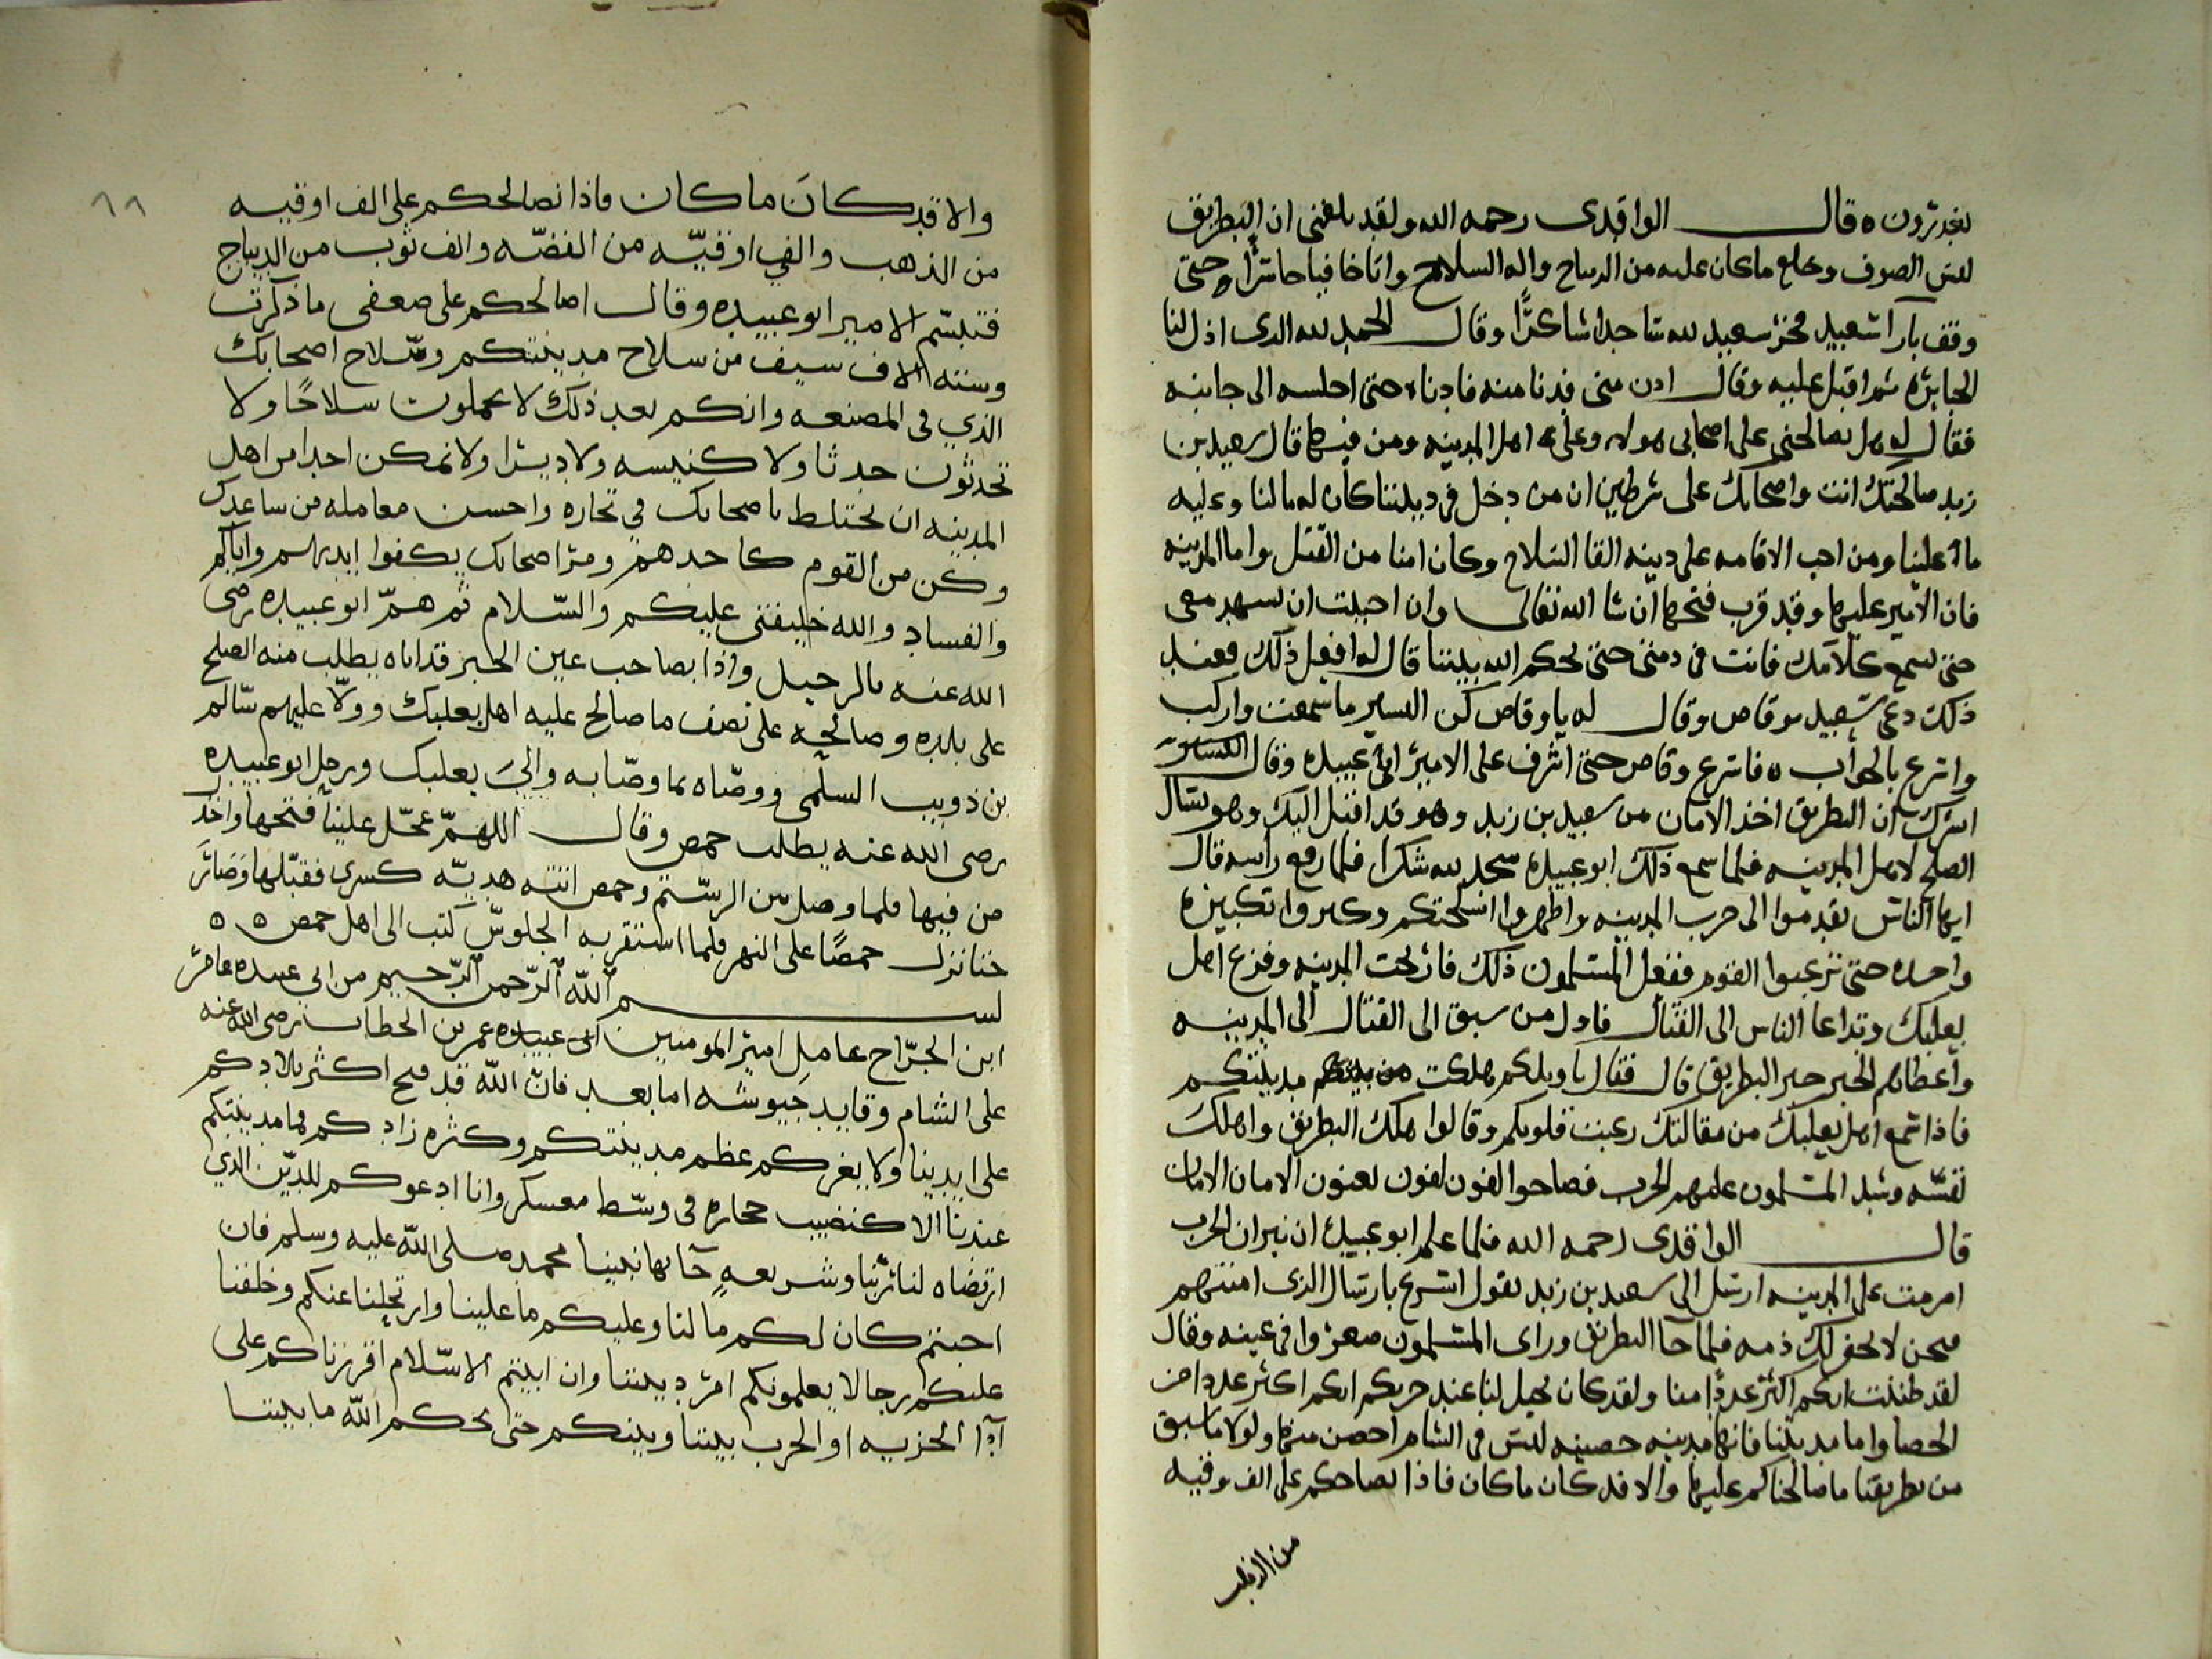 يغدرون ه قال الواقدى رحمه الله ولقد بلغنى ان البطريق
لبس الصوف وخلع ماكان عليه من الديباج واله السلاح واتاخافياحاسرا وحتى
وقف بازآ سعيد فخر سعيد لله ساجدا شاكرًا وقال الحمد لله الدى اذل لنا
الجبابره ثم اقبل عليه وقال ادن منى فدنا منه فادناه حتى اجلسه الى جانبه
فقال له هل تصالحنى على اصحابى هولاء وعلى اهل المدينه ومن فيها قال سعيد بن
زيد صالحتك انت واصحابك على شرطين ان من دخل فى ديننا كان له مالنا وعليه
ما علينا ومن احب الاقامه على دينه القا السلاح وكان امنا من القتل واما المدينه
فان الامير عليها وقد قرب فتحها ان شا الله تعالى وان احببت ان تسهد معى
حتى تسمع كلامك فانت فى ذمتى حتى يحكم الله بيننا قال له افعل ذلك فعند
ذلك دعى سعيد بوقاص وقال له يا وقاص كن البشير بما سمعت واركب
واسرع بالجواب ه فاسرع وقاص حتى اشرف على الامير ابى عبيده وقال
ابشرك ان البطريق اخذ الامان من سعيد بن زيد وهو قد اقبل اليك وهو يسال
الصلح لاهل المدينه فلما سمع ذلك ابو عبيده سجد لله شكرا فلما رفع راسه قال
ايها الناس تقدموا الى حرب المدينه واظهروا اسلحتكم وكبروا تكبيره
واحده حتى ترعبوا القوم ففعل المسلمون ذلك فارتجت المدينه وفزع اهل
بعلبك وتداعا الناس الى القتال فاول من سبق الى القتال الى المدينه
واعطاهم الخبر خبر البطريق قال فقال يا ويلكم هلكت مدينتكم
فاذا سمع اهل بعلبك من مقالتك رعبت قلوبكم وقالوا هلك البطريق واهلك
نفسه وشد المسلمون عليهم الحرب فصاحوا الفون لفون يعنون الامان الامان
قال الواقدى رحمه الله فلما علم ابو عبيده ان نيران الحرب
اضرمت على المدينه ارسل الى سعيد بن زيد يقول اسرع بارسال الذى امنتهم
فنحن لا نخفر لك ذمه فلما جا البطريق وراى المسلمون صغروا فى عينه وقال
لقد ظننت انكم اكثر عددًا منا ولقد كان يخيل لنا عند حربكم انكم اكثر عددا من
الحصا واما مدينتنا فانها مدينه حصينه ليس فى الشام احصن منها ولولا ما سبق
من بطريقنا ما صالحناكم عليها والا قد كان ماكان فاذا نصالحكم على الف وقيه
من الذهب
٦٨
والا قد كانَ ما كان فاذا نصالحكم على الف اوقيه
من الذهب والفي اوقيّه من الفضّه والف ثوب من الديباج
فتبسّم الامير ابو عبيده وقال اصالحكم على ضعفى ما ذكرت
وستة الاف سيف من سلاح مدينتكم وسلاح اصحابك
الذي فى المصنعه وانكم بعد ذلك لا تحملون سلاحًا ولا
تحدثون حدثا ولا كنيسه ولا ديرًا ولا تمكن احدا من اهل
المدينه ان يختلط باصحابك فى تجاره واحسن معامله من ساعدك
وكن من القوم كاحدهم ومر اصحابك يكفوا ايديهم واياكم
والفساد والله خليفتى عليكم والسّلام ثم همّ ابو عبيده رضى
الله عنه بالرحيل واذا بصاحب عين الجر قد اتاه يطلب منه الصلح
على بلده وصالحه على نصف ما صالح عليه اهل بعلبك وولّا عليهم سالم
بن ذويب السلمى ووصّاه بما وصّا به والىَ بعلبك ورحل ابو عبيده
رضى الله عنه يطلب حمص وقال اللهمّ عجّل علينا فتحها واخذل
من فيها فلما وصل بين الرستن وحمص اتته هديّه كسرى فقبلها وصار
حتا نزل حمصًا على النهر فلما استقر به الجلوس كتب الى اهل حمص ه ه
بسم اللّه الرّحمن الرّحيم من ابى عبيده عامر
ابن الجرّاح عامل امير المومنين ابى عبيده عمر بن الخطاب رضى الله عنه
على الشام وقايد جيوشه اما بعد فان اللّه قد فتح اكثر بلادكم
على ايدينا ولا يغركم عظم مدينتكم وكثره زادكم فما مدينتكم
عندنا الا كنضيب حجاره فى وسّط معسكر وانا ادعوكم للدّين الذي
ارتضاه لنا ربنا وشريعهٍ جآ بها نبينا محمد صلى اللّه عليه وسلم فان
اجبتم كان لكم مالنا وعليكم ما علينا وارتحلنا عنكم وخلفنا
عليكم رجالا يعلمونكم امر ديننا وان ابيتم الاسّلام اقررناكم على
آدا الجزيه او الحرب بيننا وبينكم حتى يحكم اللّه ما بيننا